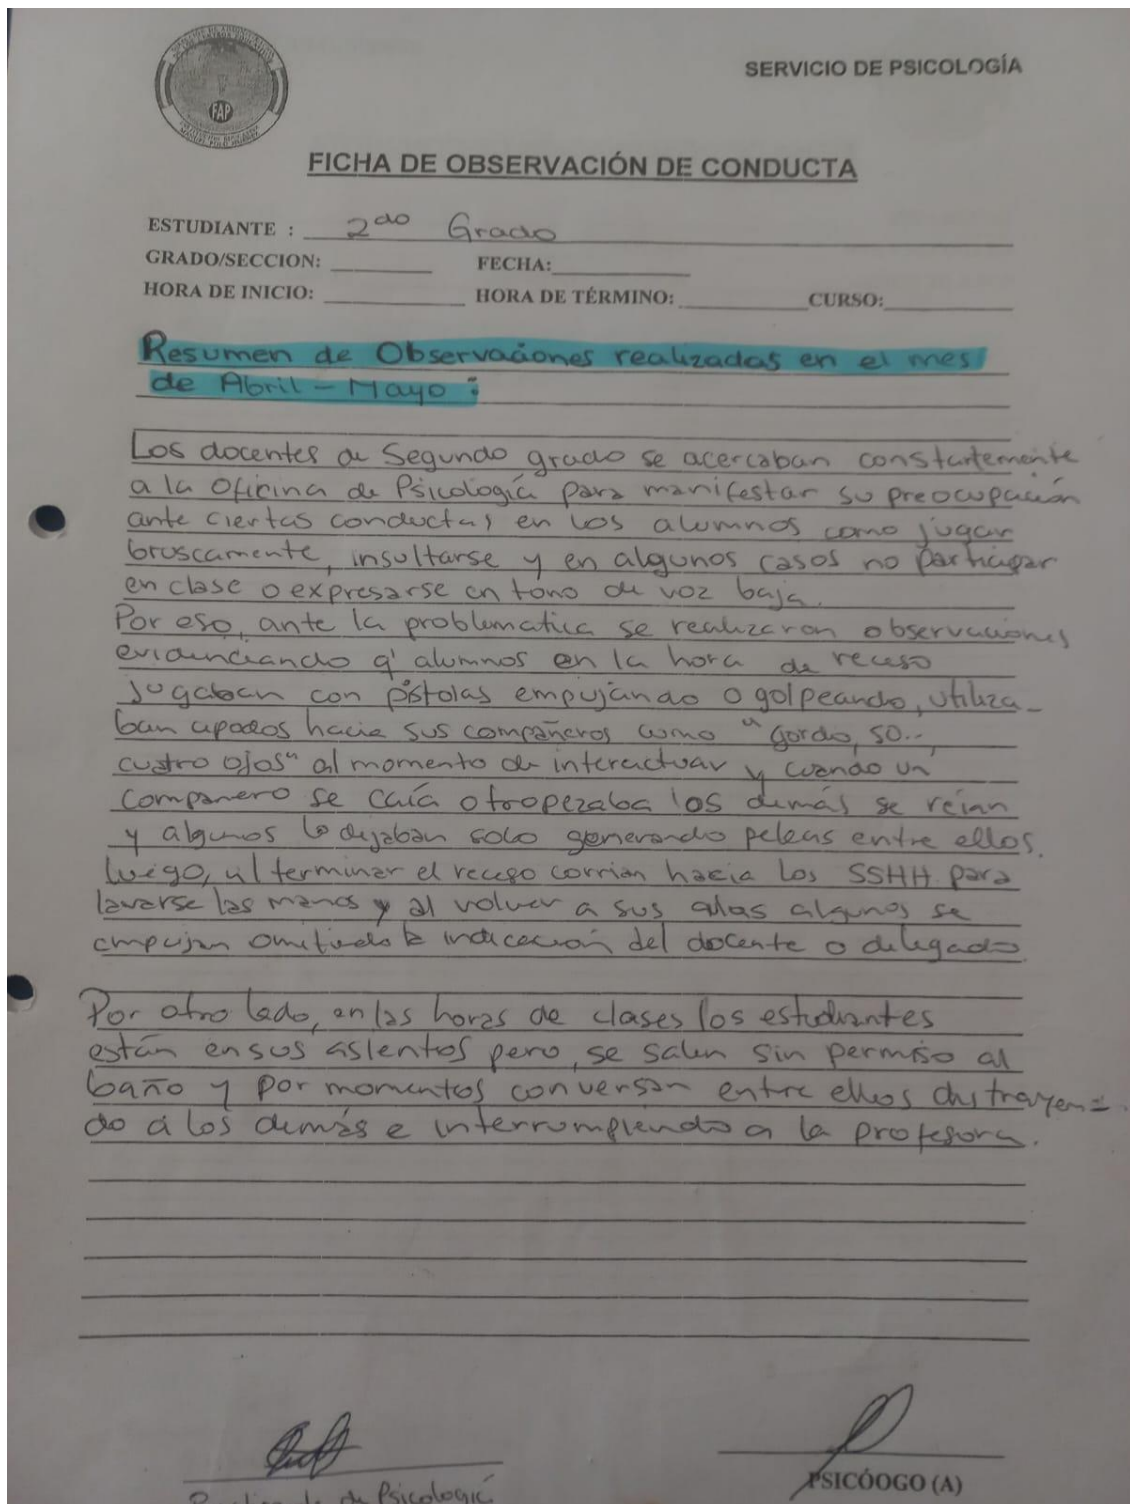 FAP
SERVICIO DE PSICOLOGÍA
FICHA DE OBSERVACIÓN DE CONDUCTA
ESTUDIANTE : 2do Grado
GRADO/SECCION: FECHA:
HORA DE INICIO: HORA DE TÉRMINO: CURSO:
Resumen de Observaciones realizadas en el mes
de Abril - Mayo :
Los docentes de Segundo grado se acercaban constantemente
a la Oficina de Psicología para manifestar su preocupación
ante ciertas conductas en los alumnos como jugar
bruscamente, insultarse y en algunos casos no participar
en clase o expresarse en tono de voz baja.
Por eso, ante la problematica se realizaron observaciones
evidenciando q' alumnos en la hora de receso
jugaban con pistolas empujando o golpeando, utiliza-
ban apodos hacia sus compañeros como "gordo, so..,
cuatro ojos" al momento de interactuar y cuando un
compañero se caía o tropezaba los demás se reían
y algunos lo dejaban solo generando peleas entre ellos.
luego, al terminar el receso corrian hacia los SSHH para
lavarse las manos y al volver a sus aulas algunos se
empujan omitiendo la indicación del docente o delegado.
Por otro lado, en las horas de clases los estudiantes
están en sus asientos pero, se salen sin permiso al
baño y por momentos conversan entre ellos distrayen-
do a los demás e interrumpiendo a la profesora.
de Psicología
PSICÓOGO (A)